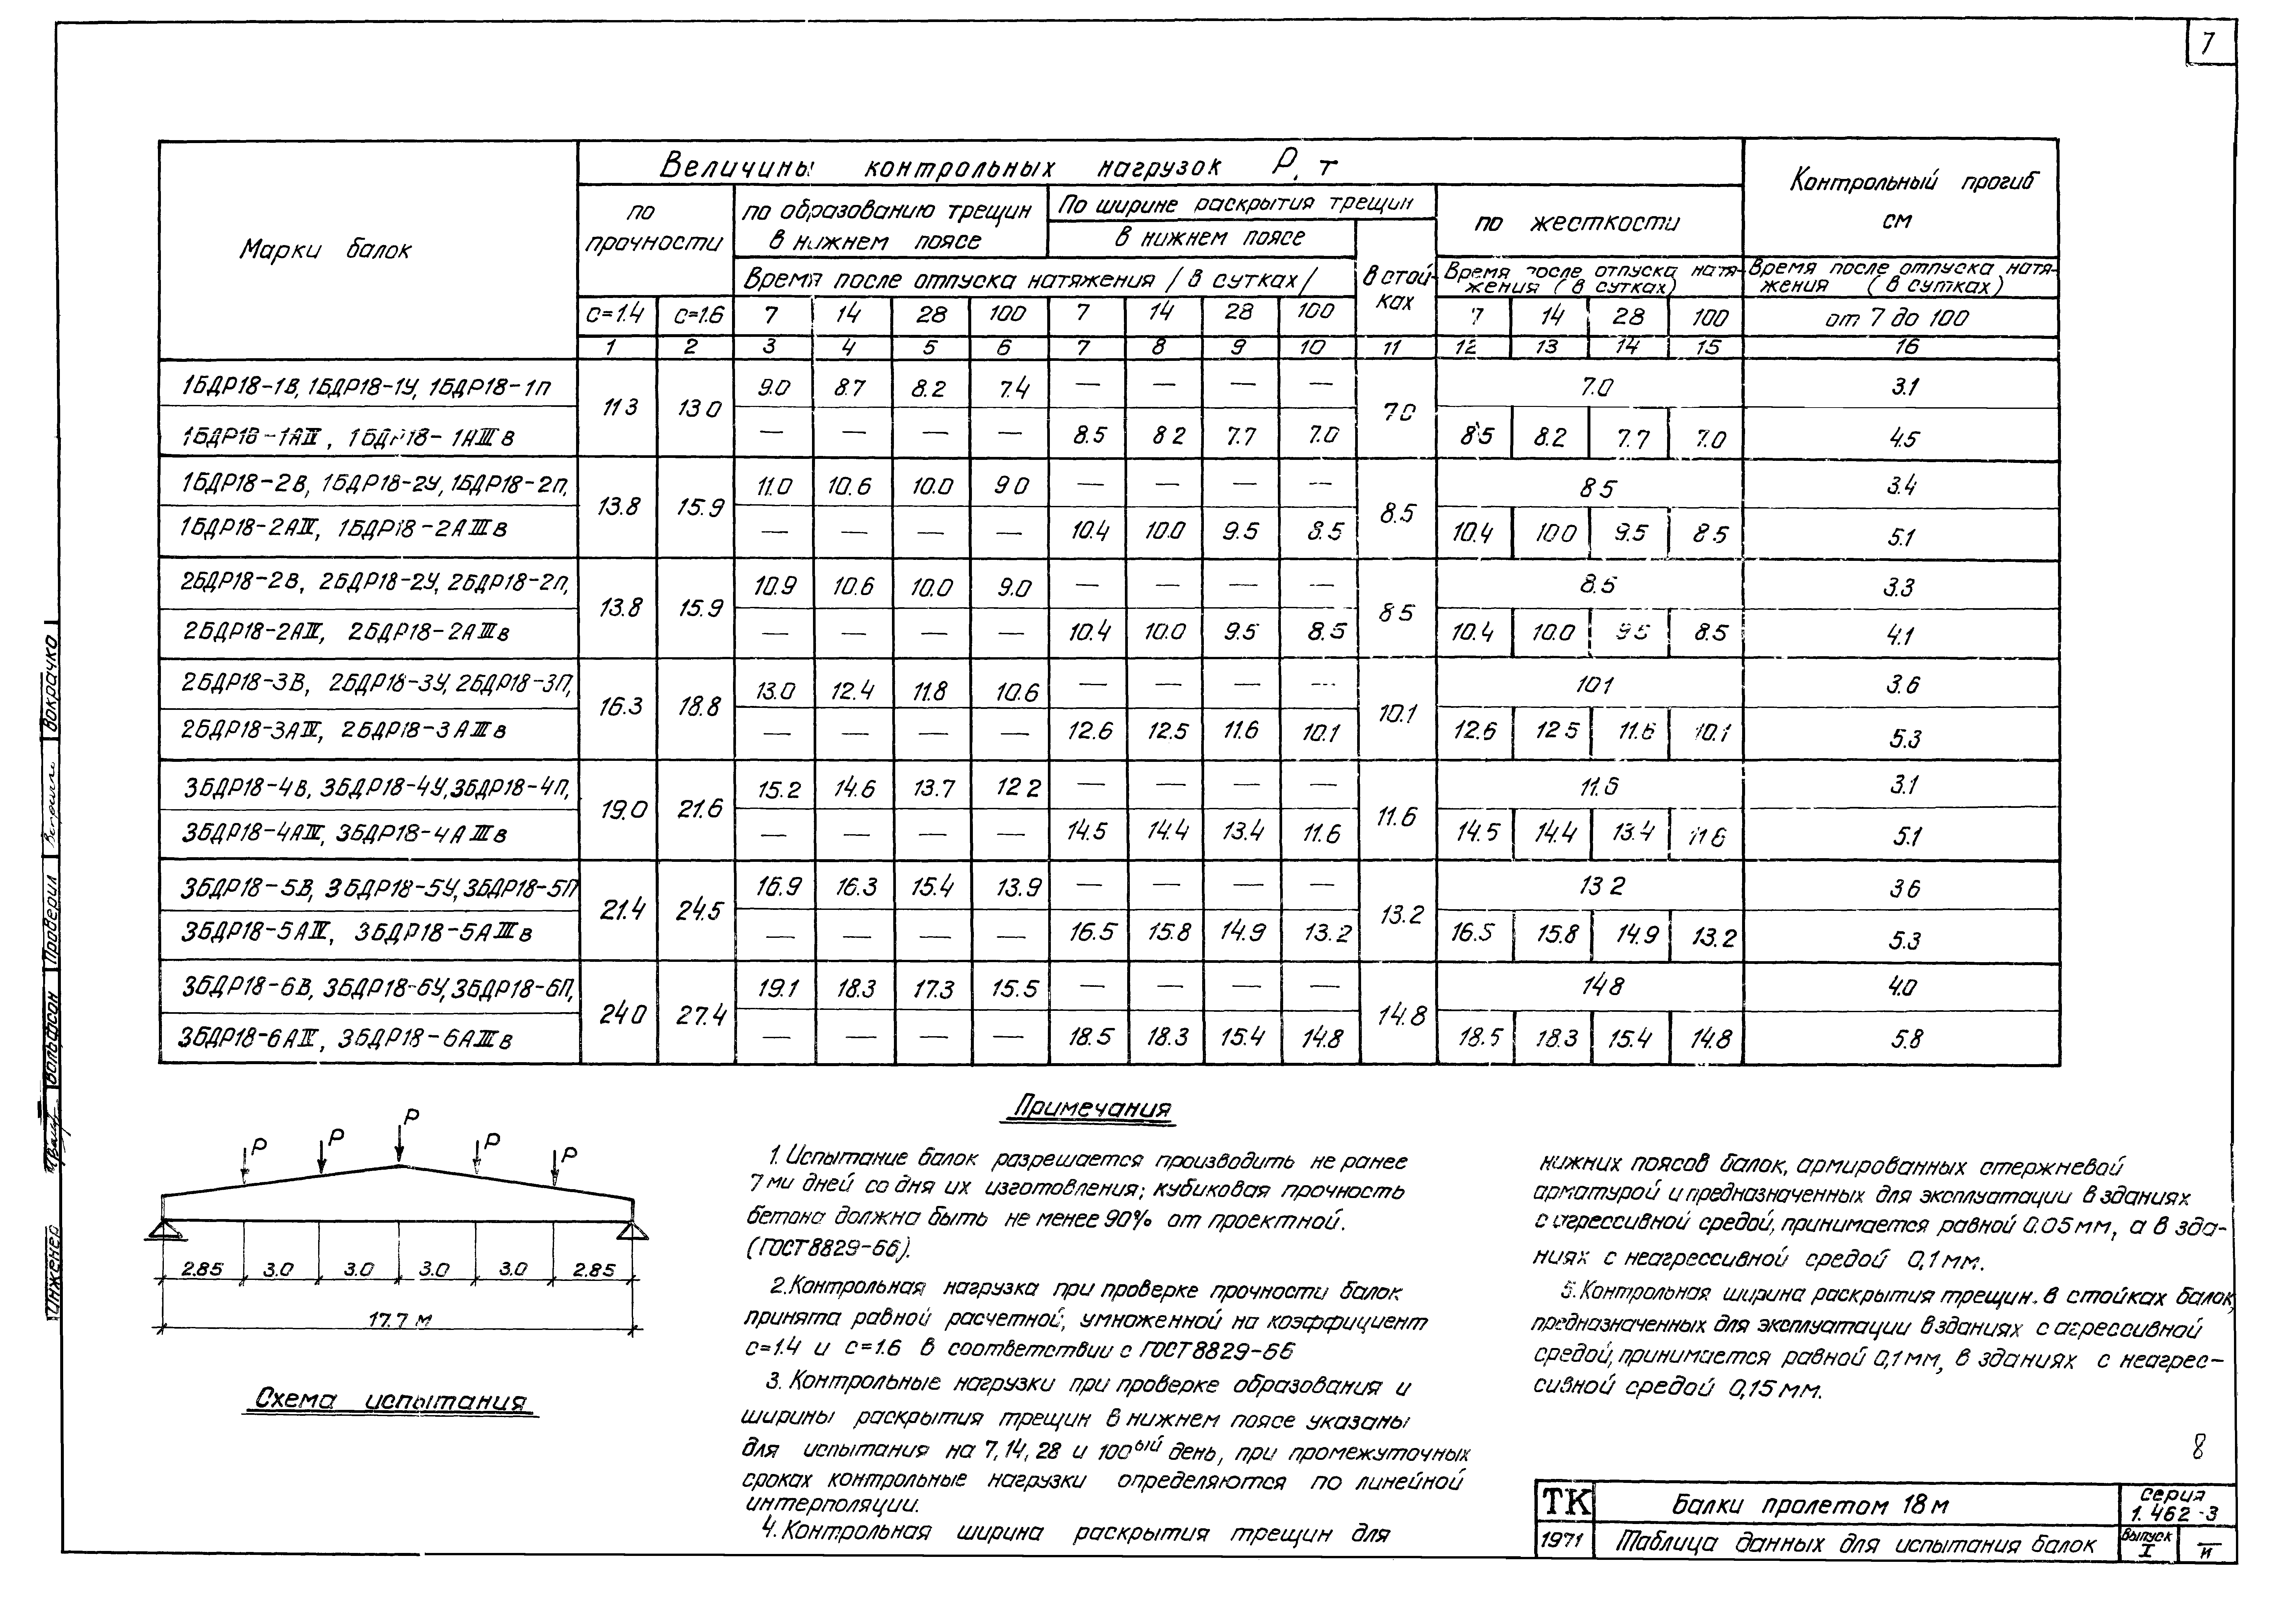 7
Марки балок
Величины контрольных нагрузок Р, т
Контрольный прогиб
см
по
прочности
по образованию трещин
в нижнем поясе
По ширине раскрытия трещин
в нижнем поясе
в стой-
ках
по жесткости
Время после отпуска натяжения / в сутках /
Время после отпуска натя-
жения (в сутках)
Время после отпуска натя-
жения (в сутках)
с=1.4 с=1.6 7 14 28 100 7 14 28 100 7 14 28 100 от 7 до 100
1 2 3 4 5 6 7 8 9 10 11 12 13 14 15 16
1БДР18-1В, 1БДР18-1У, 1БДР18-1П 9.0 8.7 8.2 7.4 — — — — 7.0 3.1
11 3 13 0 7 0
1БДР18-1АIV, 1БДР18-1АIIIв — — — — 8.5 8 2 7.7 7.0 8.5 8.2 7.7 7.0 4.5
1БДР18-2В, 1БДР18-2У, 1БДР18-2П, 11.0 10.6 10.0 9 0 — — — — 8 5 3.4
13.8 15.9 8.5
1БДР18-2АIV, 1БДР18-2АIIIв — — — — 10.4 10.0 9.5 8.5 10.4 10 0 9.5 8 5 5.1
2БДР18-2В, 2БДР18-2У, 2БДР18-2П, 10.9 10.6 10.0 9.0 — — — — 8.5 3.3
13.8 15.9 8 5
2БДР18-2АIV, 2БДР18-2АIIIв — — — — 10.4 10.0 9.5 8.5 10.4 10.0 9 5 8.5 4.1
2БДР18-3В, 2БДР18-3У, 2БДР18-3П, 13.0 12.4 11.8 10.6 — — — — 10 1 3.6
16.3 18.8 10.1
2БДР18-3АIV, 2БДР18-3АIIIв — — — — 12.6 12.5 11.6 10.1 12.6 12 5 11.6 10.1 5.3
3БДР18-4В, 3БДР18-4У, 3БДР18-4П, 15.2 14.6 13.7 12 2 — — — — 11.6 3.1
19.0 21.6 11.6
3БДР18-4АIV, 3БДР18-4АIIIв — — — — 14.5 14.4 13.4 11.6 14.5 14.4 13.4 11 6 5.1
3БДР18-5В, 3БДР18-5У, 3БДР18-5П 16.9 16.3 15.4 13.9 — — — — 13 2 3 6
21.4 24.5 13.2
3БДР18-5АIV, 3БДР18-5АIIIв — — — — 16.5 15.8 14.9 13.2 16.5 15.8 14.9 13.2 5.3
3БДР18-6В, 3БДР18-6У, 3БДР18-6П, 19.1 18.3 17.3 15.5 — — — — 14 8 4.0
24 0 27.4 14.8
3БДР18-6АIV, 3БДР18-6АIIIв — — — — 18.5 18.3 15.4 14.8 18.5 18.3 15.4 14.8 5.8
Р Р Р Р Р
2.85 3.0 3.0 3.0 3.0 2.85
17.7 м
Схема испытания
Примечания
1. Испытание балок разрешается производить не ранее
7 ми дней со дня их изготовления; кубиковая прочность
бетона должна быть не менее 90% от проектной.
(ГОСТ 8829-66).
2. Контрольная нагрузка при проверке прочности балок
принята равной расчетной, умноженной на коэффициент
с=1.4 и с=1.6 в соответствии с ГОСТ 8829-66
3. Контрольные нагрузки при проверке образования и
ширины раскрытия трещин в нижнем поясе указаны
для испытания на 7, 14, 28 и 100ый день, при промежуточных
сроках контрольные нагрузки определяются по линейной
интерполяции.
4. Контрольная ширина раскрытия трещин для
нижних поясов балок, армированных стержневой
арматурой и предназначенных для эксплуатации в зданиях
с агрессивной средой, принимается равной 0.05 мм, а в зда-
ниях с неагрессивной средой 0,1 мм.
5. Контрольная ширина раскрытия трещин в стойках балок,
предназначенных для эксплуатации в зданиях с агрессивной
средой, принимается равной 0,1 мм, в зданиях с неагрес-
сивной средой 0,15 мм.
8
ТК
1971
Балки пролетом 18 м
Таблица данных для испытания балок
серия
1.462-3
выпуск
I
И
Инженер Вольфсон Проверил Вокрачко